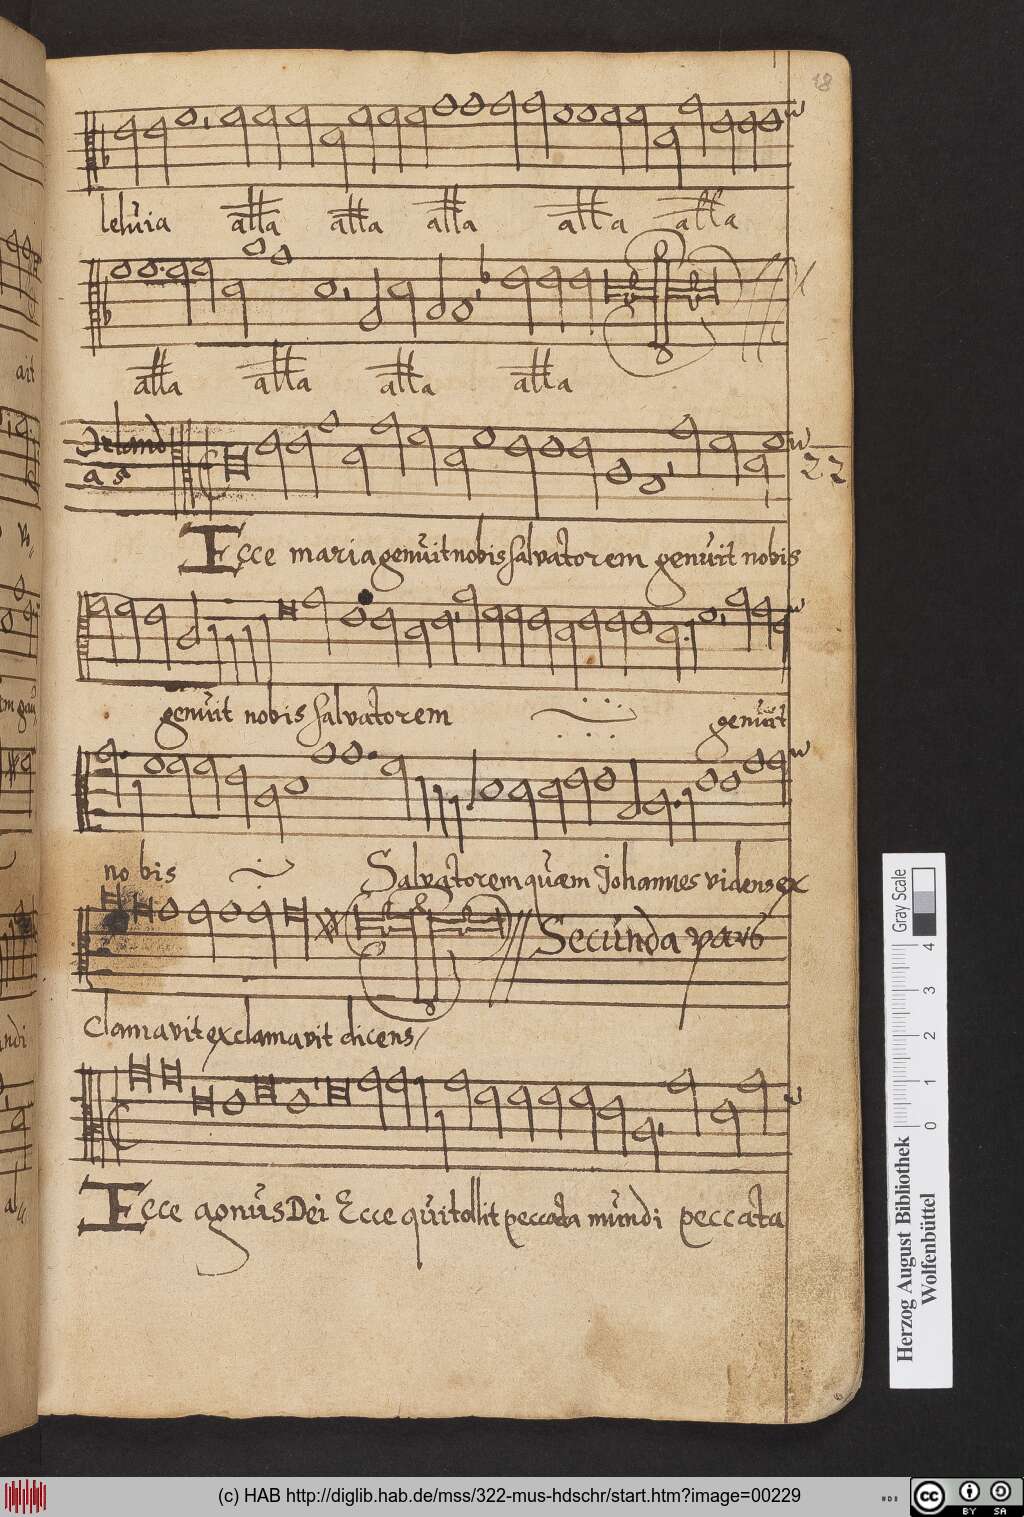 18
lehuia alla alla alla alla alla
alla alla alla alla
Orland
as
22
Ecce maria genuit nobis salvatorem genuit nobis
genuit nobis salvatorem genuit
nobis Salvatorem quæm Johannes videns ex
Secunda pars
clamavit exclamavit dicens
Ecce agnus Dei Ecce qui tollit peccata mundi peccata
Gray Scale
0 1 2 3 4
Herzog August Bibliothek
Wolfenbüttel
(c) HAB http://diglib.hab.de/mss/322-mus-hdschr/start.htm?image=00229
cc BY SA